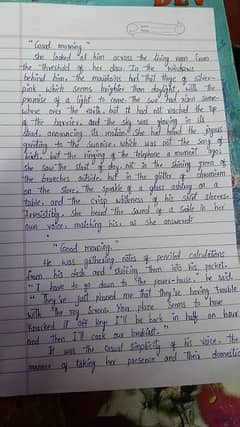 "Good morning."
She looked at him across the living room from
the threshold of her door. In the windows
behind him, the mountains had that tinge of silver-
pink which seems brighter than daylight, with the
promise of a light to come. The sun had risen some-
where over the earth, but it had not reached the top
of the barrier, and the sky was glowing in its
stead, announcing its motion. She had heard the joyous
greeting to the sunrise, which was not the song of
birds, but the ringing of the telephone a moment ago;
she saw the start of day, not in the shining green of
the branches outside, but in the glitter of chromium
on the stove, the sparkle of a glass ashtray on a
table, and the crisp whiteness of his shirt sleeves.
Irresistibly, she heard the sound of a smile in her
own voice, matching his, as she answered:
"Good morning."
He was gathering notes of penciled calculations
from his desk and stuffing them into his pocket.
"I have to go down to the power-house," he said.
"They've just phoned me that they're having trouble
with the ray screen. Your plane seems to have
knocked it off key. I'll be back in half an hour
and then I'll cook our breakfast."
It was the casual simplicity of his voice, the
manner of taking her presence and their domestic